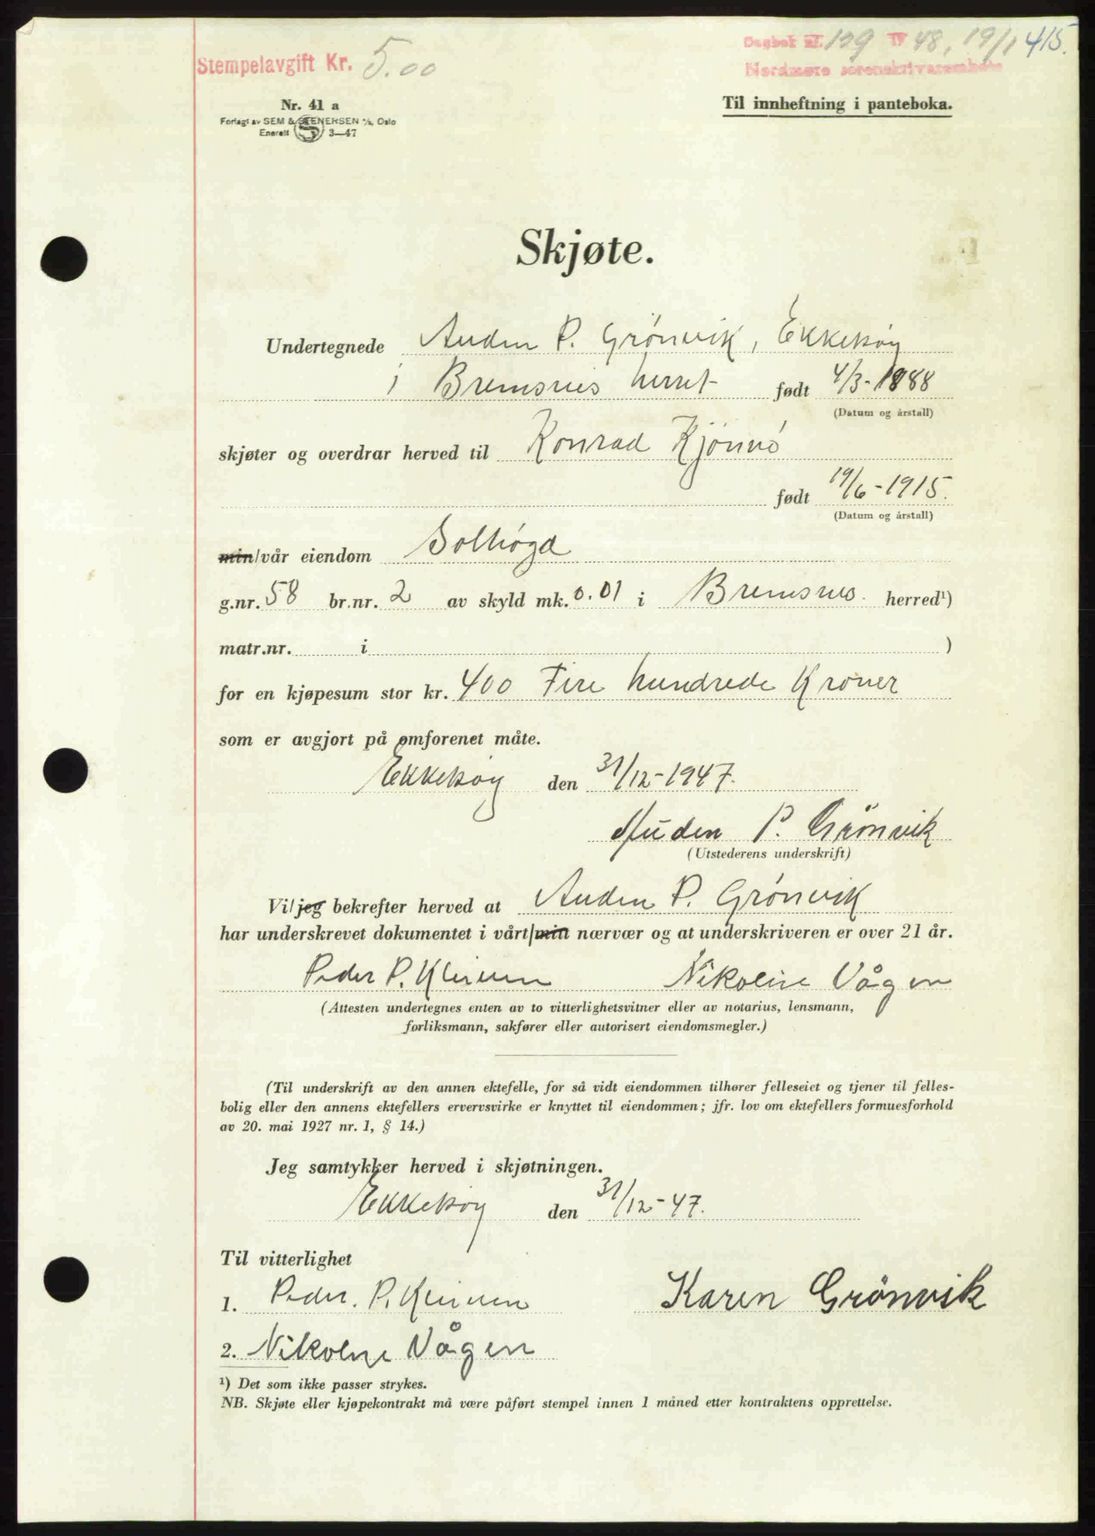 Stempelavgift Kr. 5.00
Dagbok nr. 129 19 48, 19/1 415.
Nordmøre sorenskriverembete
Nr. 41 a
Forlagt av SEM & STENERSEN A/S, Oslo
Enerett S 3—47
Til innheftning i panteboka.
Skjøte.
Undertegnede Auden P. Grönvik, Ekkilsøy
i Bremsnes herret født 4/3-1888
(Datum og årstall)
skjøter og overdrar herved til Konrad Kjönnö
født 19/6-1915.
(Datum og årstall)
min/vår eiendom Solhögd
g.nr. 58 br.nr. 2 av skyld mk. 0.01 i Bremsnes herred¹)
matr.nr. i )
for en kjøpesum stor kr. 400 Fire hundrede Kroner
som er avgjort på omforenet måte.
Ekkilsøy den 31/12-1947.
Auden P. Grönvik
(Utstederens underskrift)
Vi/jeg bekrefter herved at Auden P. Grönvik
har underskrevet dokumentet i vårt/min nærvær og at underskriveren er over 21 år.
Peder P. Nikoline Vågen
(Attesten undertegnes enten av to vitterlighetsvitner eller av notarius, lensmann,
forliksmann, sakfører eller autorisert eiendomsmegler.)
(Til underskrift av den annen ektefelle, for så vidt eiendommen tilhører felleseiet og tjener til felles-
bolig eller den annens ektefellers ervervsvirke er knyttet til eiendommen; jfr. lov om ektefellers formuesforhold
av 20. mai 1927 nr. 1, § 14.)
Jeg samtykker herved i skjøtningen.
Ekkilsøy den 31/12-47.
Til vitterlighet
1. Peder. P. Karen Grönvik
2. Nikoline Vågen
¹) Det som ikke passer strykes.
NB. Skjøte eller kjøpekontrakt må være påført stempel innen 1 måned etter kontraktens opprettelse.